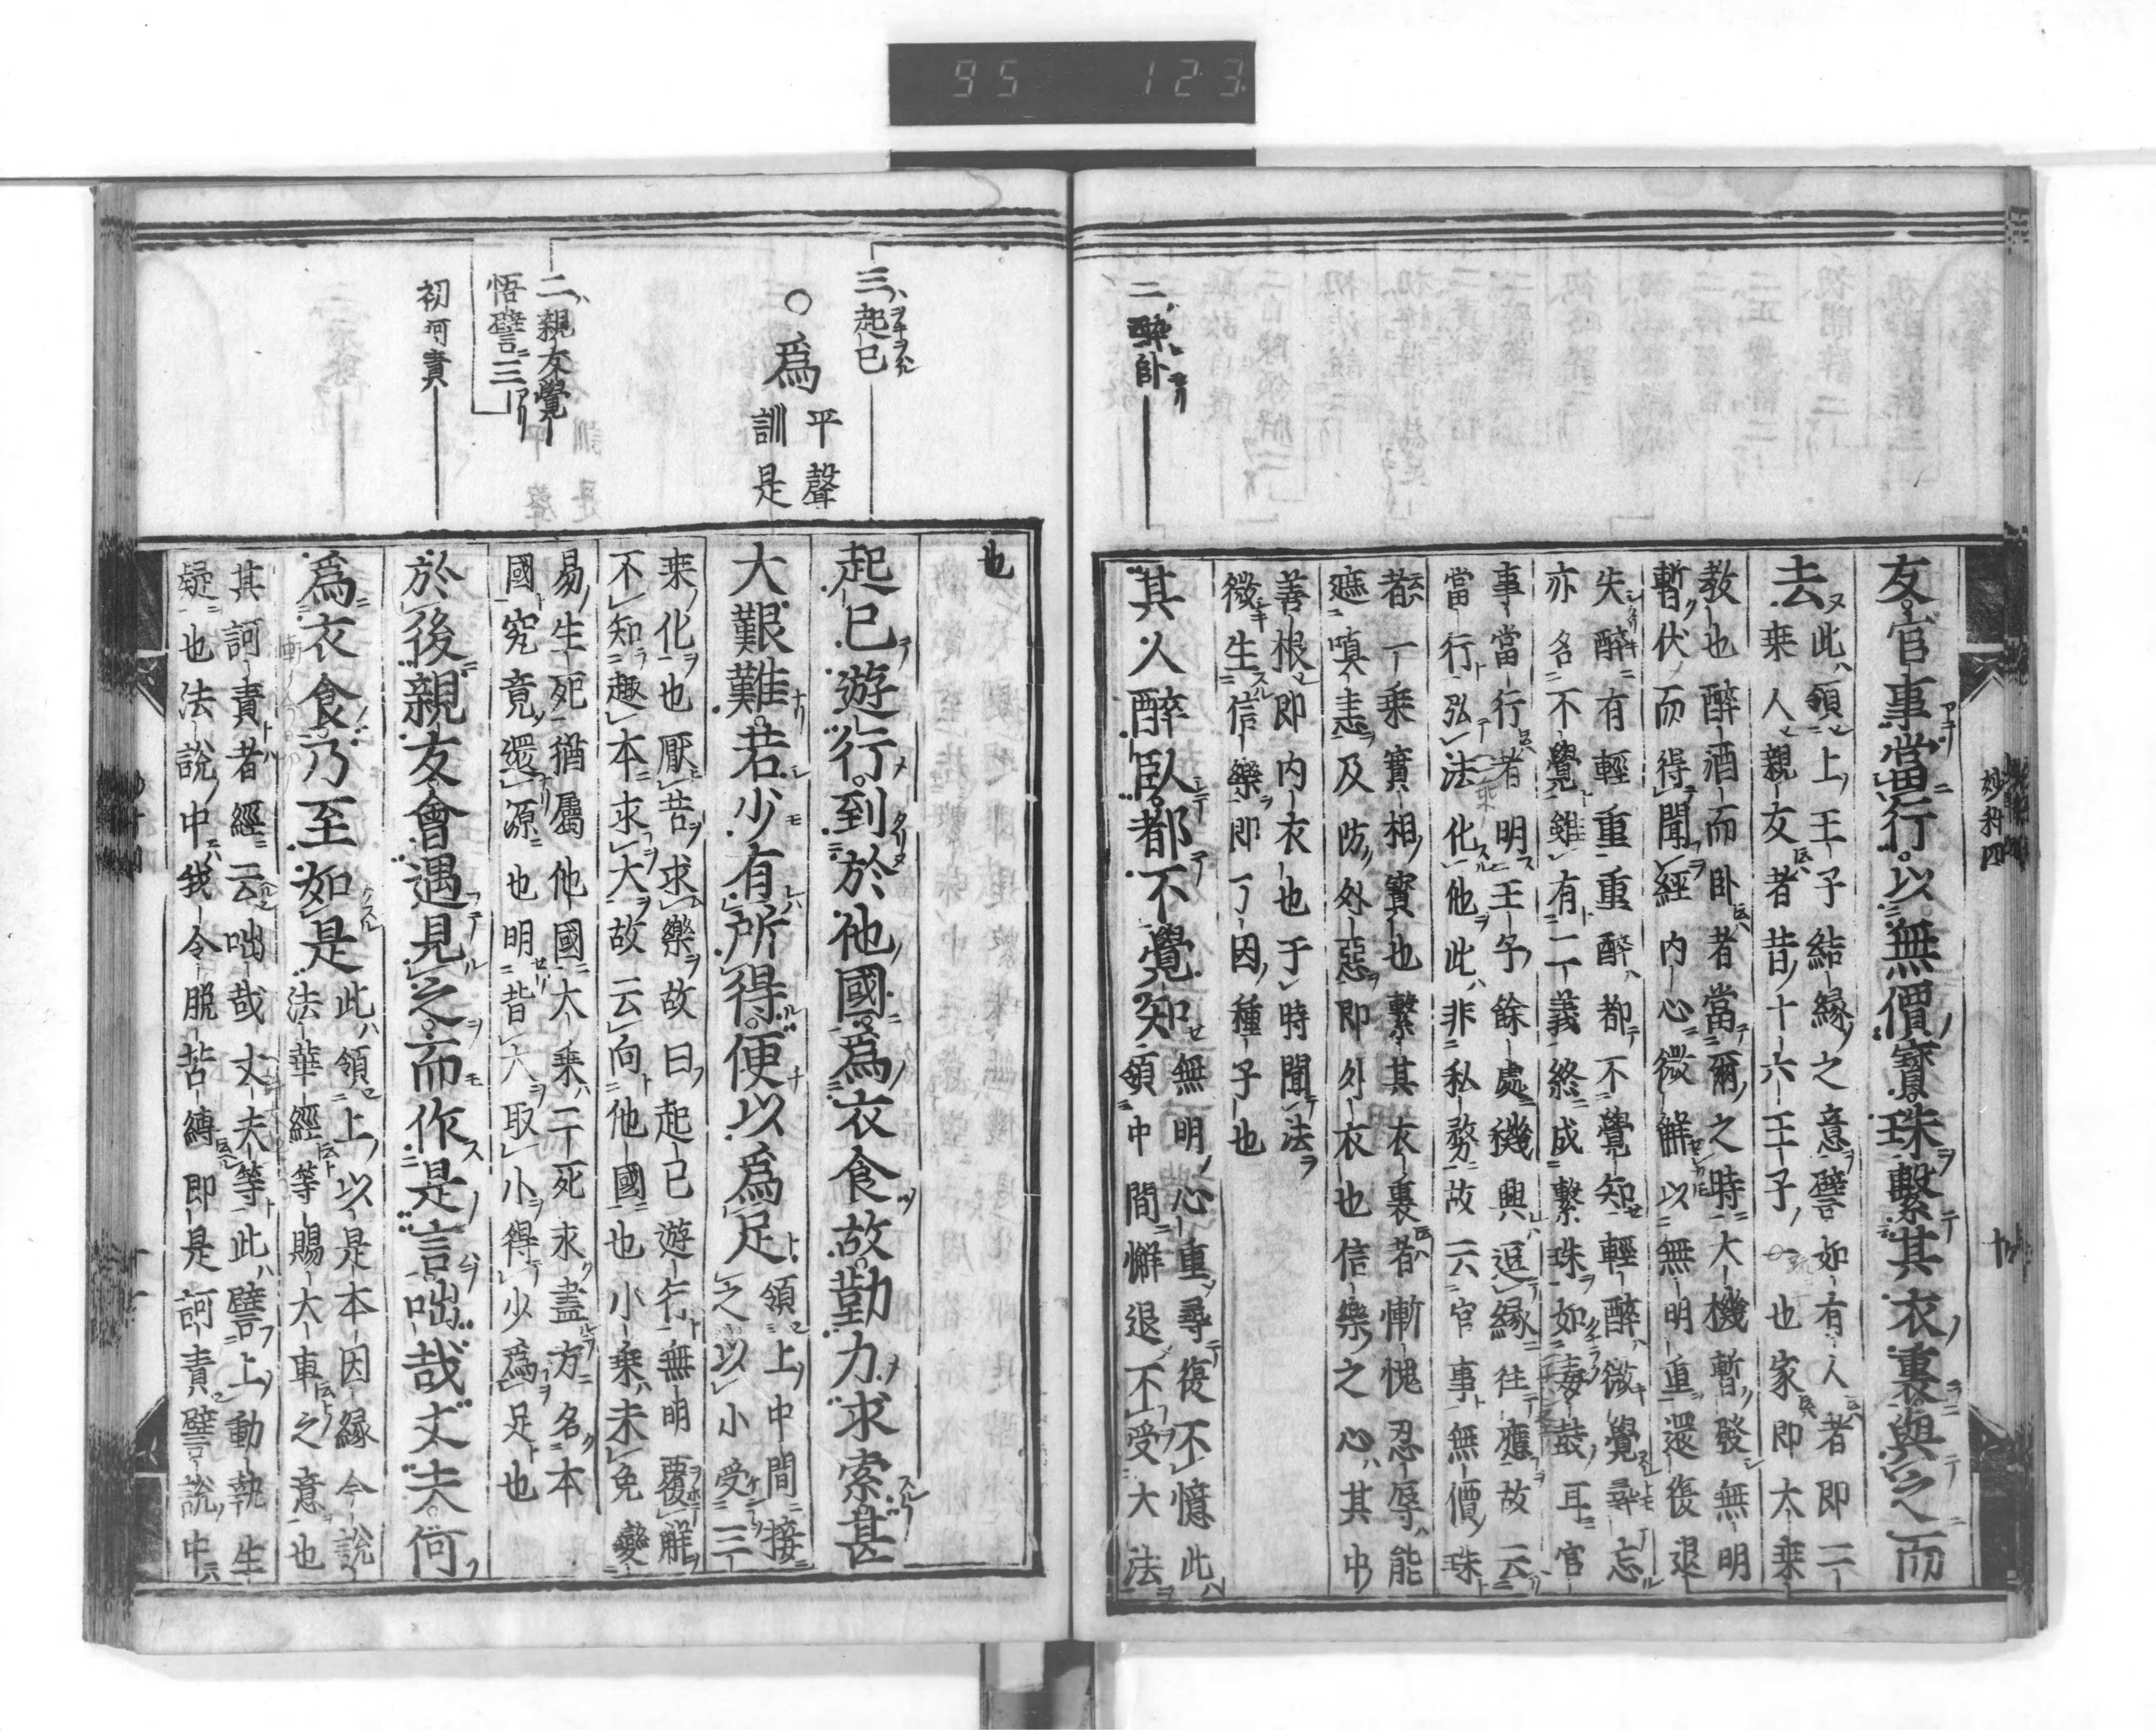 95 123
友官事當行以無價寶珠繫其衣裏與之而
去
此領上王子結縁之意譬如有人者即二
来人親友者昔十六王子一也家即大乗
教也醉酒而卧者當爾之時大機暫發無明
暫伏而得聞經内心微解以無明重還復退
失醉有輕重重醉都不覺知輕醉微覺尋忘
亦名不覺雖有二義終成繫珠如毒鼓耳官
事當行者明王子餘處機興逗縁往應故云
當行弘法化他此非私務故云官事無價珠
者一乗實相寳也繫其衣裏者慚愧忍辱能
遮嗔恚及防外惡即外衣也信樂之心其中
善根即内衣也于時聞法
微生信樂即了因種子也
二醉卧
其人醉臥都不覺知
無明心重尋復不憶此
領中間懈退不受大法
妙科四
也
三起已
起已遊行到於他國爲衣食故勤力求索甚
大艱難若少有所得便以爲足
領上中間接
之以小受三
○爲
平聲
訓是
来化也厭苦求樂故曰起已遊行無明覆解
不知趣本求大故云向他國也小乗未免變
易生死猶屬他國大乗二死求盡方名本
國究竟還源也明昔大取小得少爲足也
二親友覺
悟譬三
初訶責
於後親友會遇見之而作是言咄哉丈夫何
爲衣食乃至如是
此領上以是本因縁今説
法華經等賜大車之意也
其訶責者經云咄哉丈夫等此譬上動執生
疑也法説中我令脱苦縛即是訶責譬説中